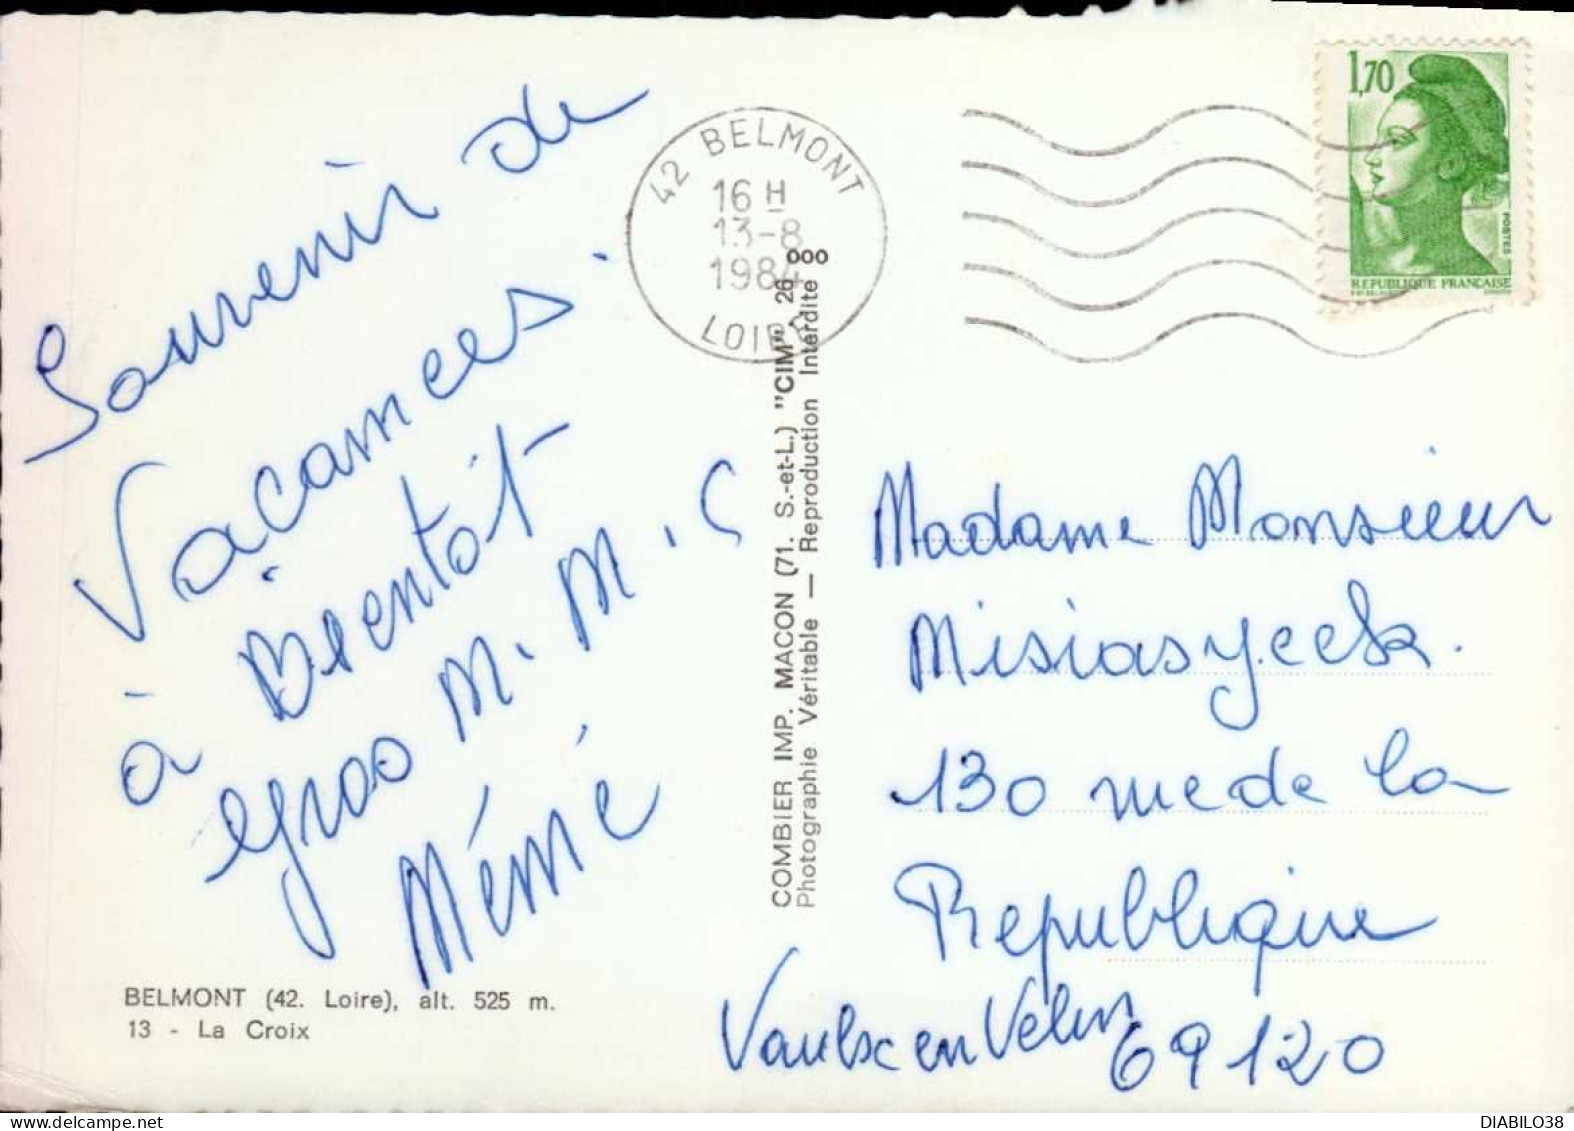 Souvenir de
Vacances.
à Bientôt
gros M. M. C
Mémé
BELMONT (42. Loire), alt. 525 m.
13 - La Croix
COMBIER IMP. MACON (71. S.-et-L.) "CIM" 26 000
Photographie Véritable — Reproduction Interdite
42 BELMONT
16 H
13-8
1984
LOIRE
1,70
POSTES
REPUBLIQUE FRANÇAISE
Madame Monsieur
Misiasyeck.
130 rue de la
Republique
Vaulx en Velin
69120
DIABILO38